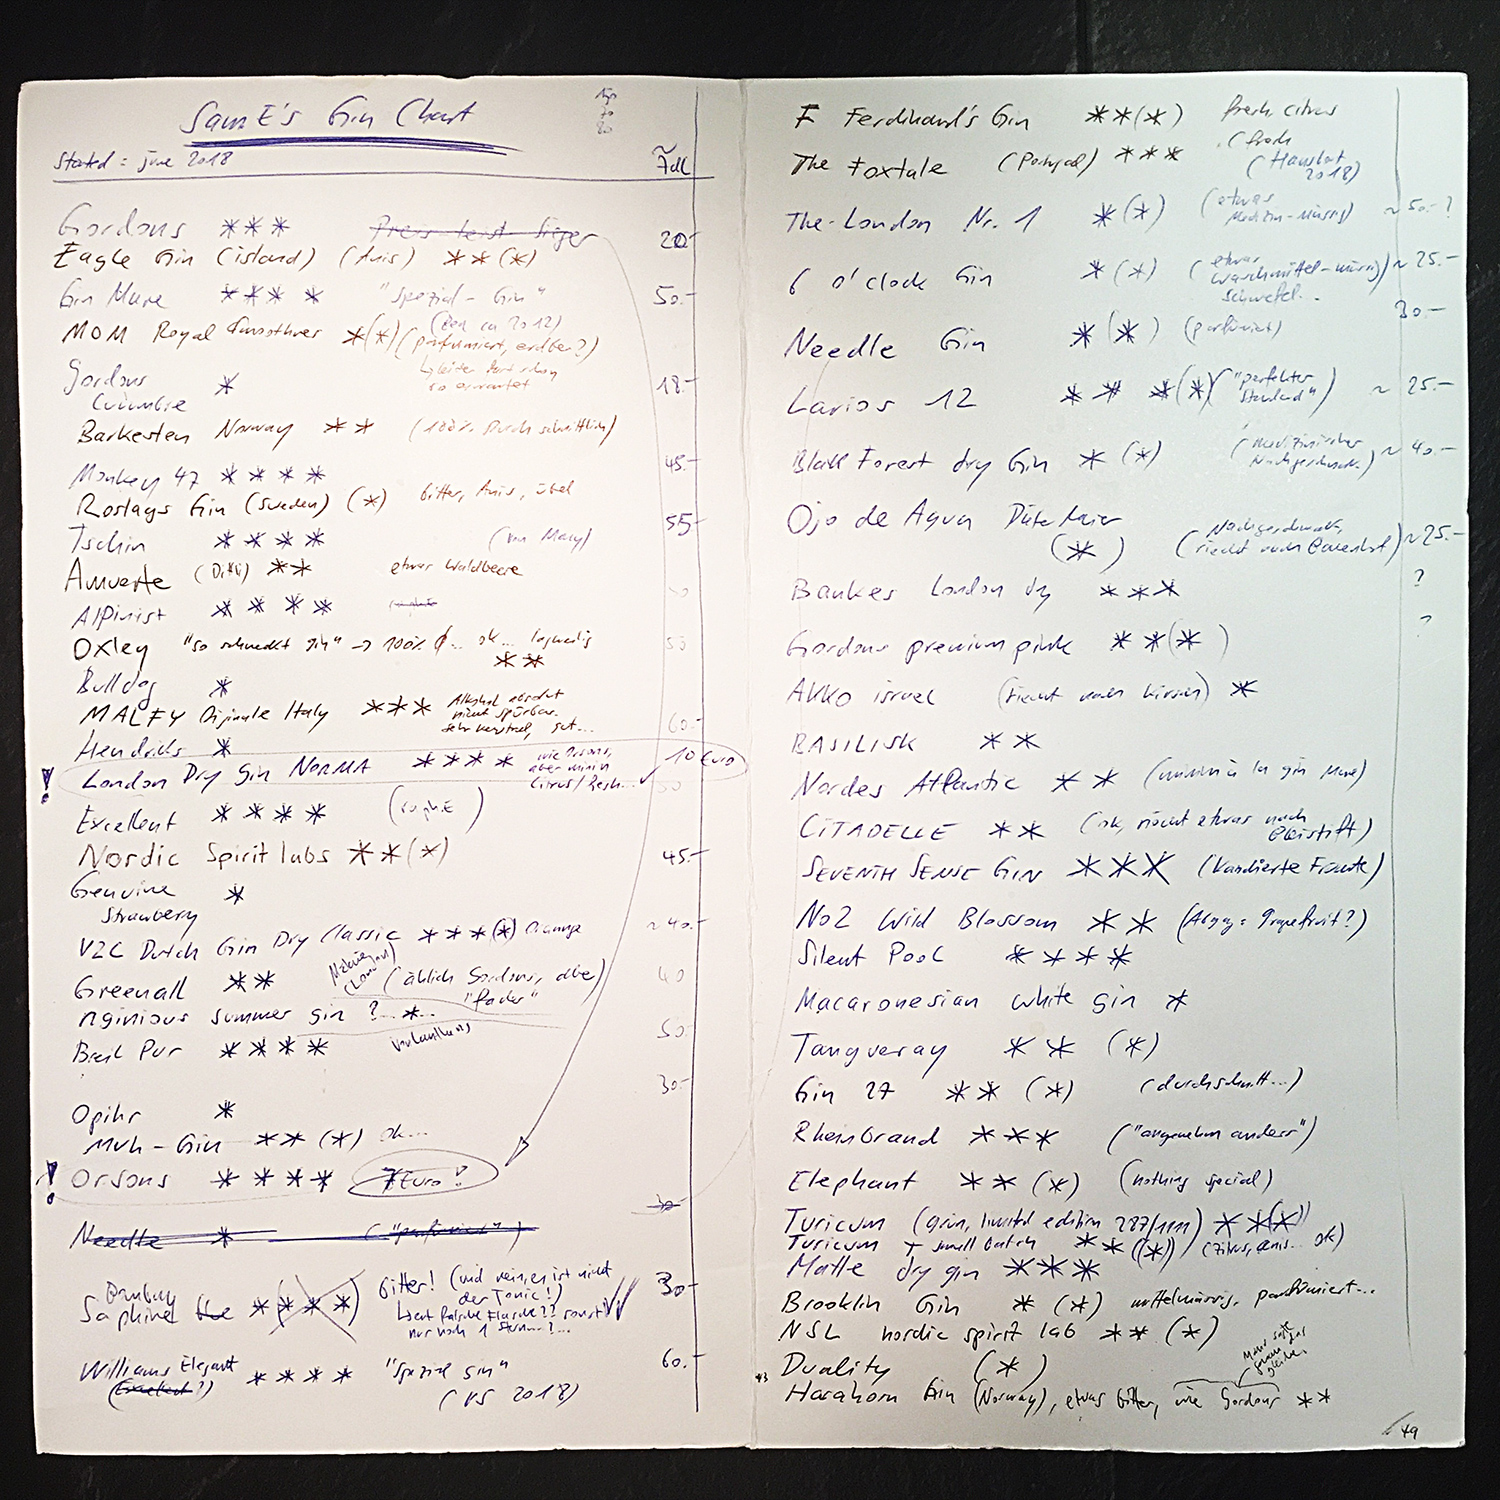 Sam E's Gin Chart
Started: june 2018
7dl
Gordons *** Preis-leist. Sieger 20.-
Eagle Gin (island) (Anis) **(*)
Gin Mare **** "Spezial-Gin" 50.-
(Ben ca 2012)
MOM Royal Smoothner *(*) (parfümiert, erdbeer?)
so erwartet
Gordons * 18.-
Cucumbre
Barkesten Norway ** (100% Durchschnittlich)
Monkey 47 **** 45.-
Roslags Gin (Sweden) (*) bitter, Anis, übel
Tschin **** (von Macy) 55.-
Amuerte ** etwas Waldbeere
Alpinist ****
Oxley "so schmeckt gin" -> 100% ... ok... langweilig 50
**
Bulldog *
MALFY Originale Italy *** Alkohol absolut
nicht spürbar.
sehr neutral, gut...
60.-
Hendricks *
! London Dry Gin NORMA **** wie Orsons, 10 Euro
aber minim
Citrus/fresh...
50
Excellent **** (SophE)
Nordic Spirit labs **(*) 45.-
Genuine *
Strawbery
V2C Dutch Gin Dry Classic ***(*) Orange ~40.-
Greenall ** (ählich Gordons, aber) 40
"fader"
nginious summer gin ?..*..
50.-
Breil Pur ****
30.-
Opihr *
Muh-Gin **(*) ok...
! Orsons **** 7 Euro!
30
Needle * ("parfümiert")
Bombay bitter! (und nein, es ist nicht
der Tonic!)
Saphire ****
falsche Flasche?? sonst
nur noch 1 Stern..?...
30.-
Williams Elegant **** "Spezial gin" 60.-
(Excellent?) (VS 2018)
F Ferdinand's Gin **(*) fresh, citrus
The Foxtale (Portugal) *** (fresh
(Hauslot
2018)
The London Nr. 1 *(*) (etwas ~50.-?
Medizin-mässig)
6 o'clock Gin *(*) (etwas ~25.-
waschmittel-mässig)
Schwefel..
30.-
Needle Gin *(*) (parfümiert)
Larios 12 ***(*) ("perfekter ~25.-
Standard")
Black Forest dry Gin *(*) (medizinischer ~40.-
Nachgeschmack)
Ojo de Agua Dieter Meier
(*) (Nachgeschmack, ~25.-
riecht nach Bauernhof)
?
Bankes London dry ***
?
Gordons premium pink **(*)
AKKO israel (riecht nach kirsch) *
BASILISK **
Nordes Atlantic ** (minim à la gin Mare)
CITADELLE ** (ok, riecht etwas nach
Bleistift)
SEVENTH SENSE GIN *** (kandierte Früchte)
No2 Wild Blossom ** (Abgang: Grapefruit?)
Silent Pool ****
Macaronesian white gin *
Tanqueray **(*)
Gin 27 **(*) (durchschnitt...)
RheinBrand *** ("angenehm anders")
Elephant **(*) (nothing special)
Turicum (grün, limited edition 287/1111) **(*)
Turicum small batch **((*)) (Zitrus, anis... ok)
Matte dry gin ***
Brooklin Gin *(*) mittelmässig, parfümiert...
NSL nordic spirit lab **(*)
Duality (*)
Harahorn Gin (Norway), etwas bitter, wie Gordons **
49